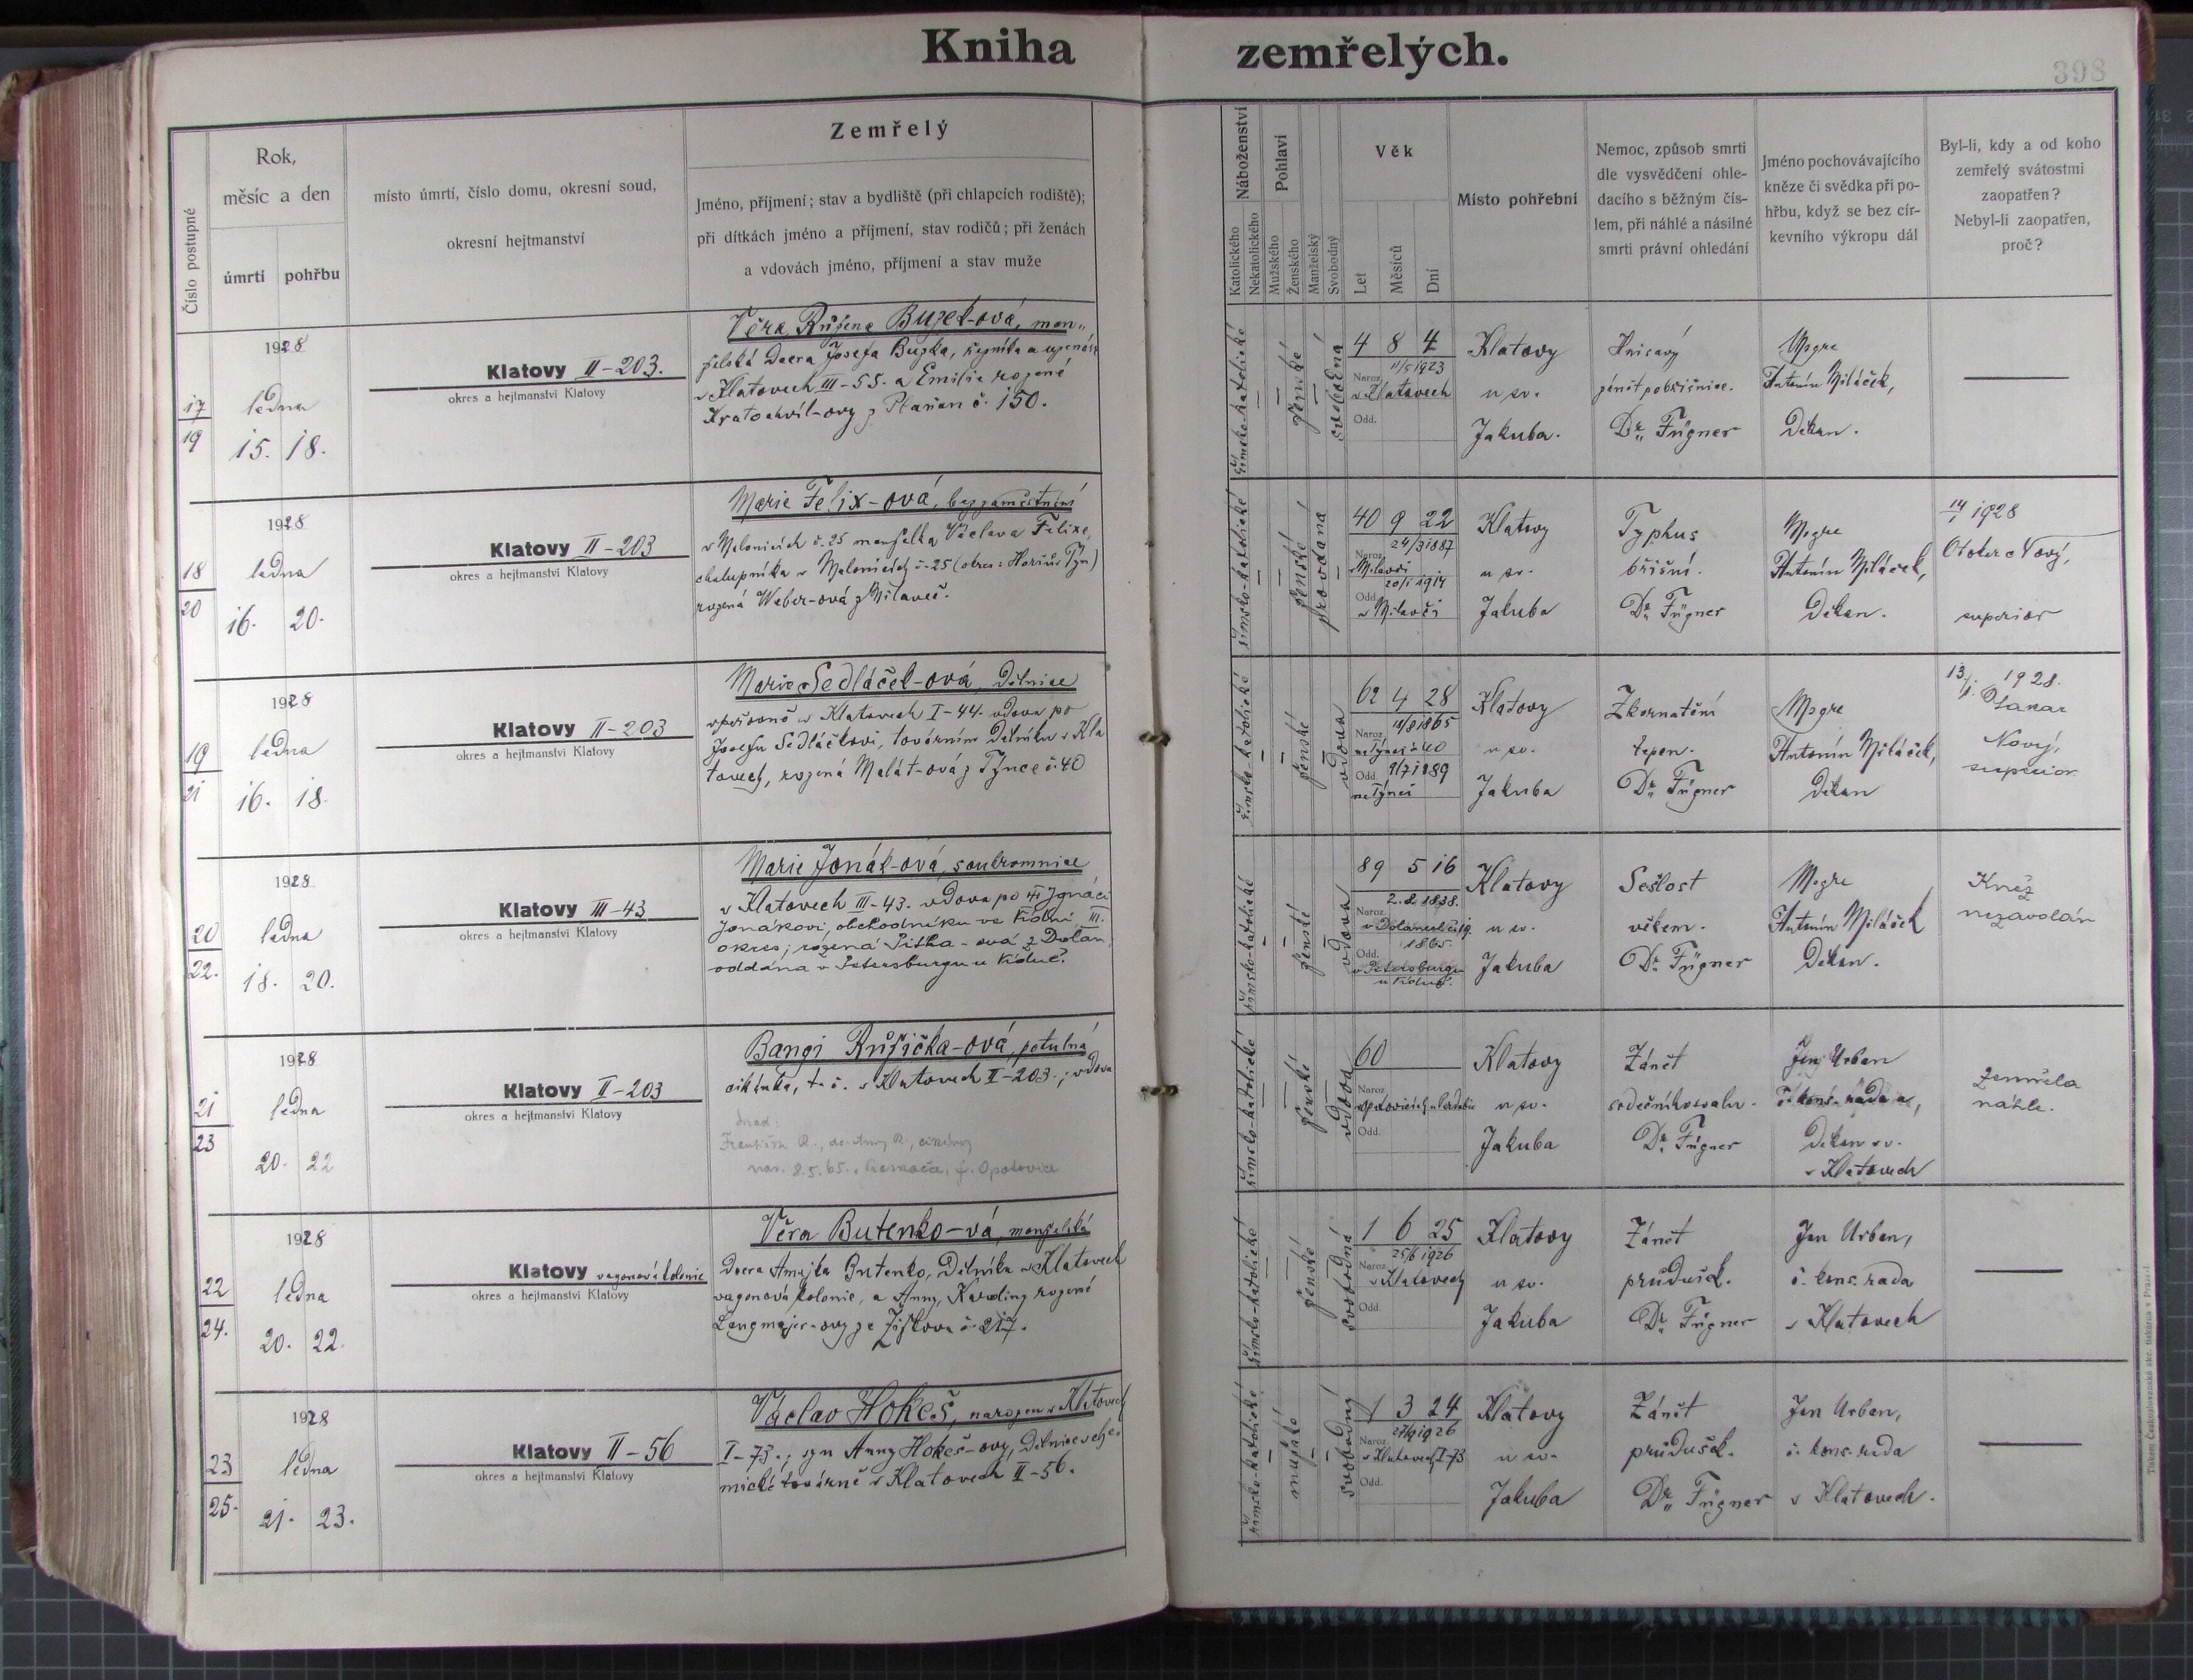 Kniha zemřelých.
398
Číslo postupné
Rok,
měsíc a den
úmrtí pohřbu
místo úmrtí, číslo domu, okresní soud,
okresní hejtmanství
Zemřelý
Jméno, příjmení; stav a bydliště (při chlapcích rodiště);
při dítkách jméno a příjmení, stav rodičů; při ženách
a vdovách jméno, příjmení a stav muže
Náboženství
Katolického
Nekatolického
Pohlaví
Mužského
Ženského
Manželský
Svobodný
Věk
Let
Měsíců
Dní
Místo pohřební
Nemoc, způsob smrti
dle vysvědčení ohle-
dacího s běžným čís-
lem, při náhlé a násilné
smrti právní ohledání
Jméno pochovávajícího
kněze či svědka při po-
hřbu, když se bez cír-
kevního výkropu dál
Byl-li, kdy a od koho
zemřelý svátostmi
zaopatřen?
Nebyl-li zaopatřen,
proč?
17
19
1928
ledna
15. 18.
Klatovy II-203.
okres a hejtmanství Klatovy
Věra Růžena Buzek-ová, man-
želská dcera Josefa Buzka,
v Klatovech III-55. a Emilie rozené
Kratochvíl-ovy z Plaňan č. 150.
římsko-katolické
ženské
svobodná
4 8 4
11/5 1923
Naroz.
v Klatovech
Odd.
Klatovy
u sv.
Jakuba.
Hnisavý
zánět pobřišnice.
Dr. Fügner
Msgre
Antonín Miláček,
Děkan.
18
20
1928
ledna
16. 20.
Klatovy II-203
okres a hejtmanství Klatovy
Marie Felix-ová, bez zaměstnání
v Melonicích č. 25 manželka Václava Felixe,
chalupníka v Melonicích č. 25 (okres: Horšův Týn)
rozená Weber-ová z Milaveč.
římsko-katolické
ženské
provdaná
40 9 22
24/3 1887
Naroz.
v Milavči
20/1 1914
Odd.
v Milavči
Klatovy
u sv.
Jakuba
Typhus
břišní.
Dr. Fügner
Msgre
Antonín Miláček,
Děkan.
14/1 1928
Otokar Nový,
superior
19
21
1928
ledna
16. 18.
Klatovy II-203
okres a hejtmanství Klatovy
Marie Sedláček-ová, dělnice
v Klatovech I-44. vdova po
Josefu Sedláčkovi, továrním dělníku v Kla
tovech, rozená Malát-ová z Týnce č. 40
římsko-katolické
ženské
vdova
62 4 28
18/8 1865
Naroz.
v Týnci č. 40
9/7 1889
Odd.
v Týnci
Klatovy
u sv.
Jakuba
Zkornatění
tepen.
Dr. Fügner
Msgre
Antonín Miláček,
Děkan
13./1. 1928.
Otakar
Nový,
superior
20
22.
1928
ledna
18. 20.
Klatovy III-43
okres a hejtmanství Klatovy
Marie Jonák-ová, soukromnice
v Klatovech III-43. vdova po Ignáci
Jonákovi, obchodníku ve Vídni III.
okres; rozená Pitka-ová z Dolan,
oddána v Petersburgu u Vídně.
římsko-katolické
ženské
vdova
89 5 16
2. 8. 1838.
Naroz.
1865.
Odd.
v Petersburgu
u Vídně.
Klatovy
u sv.
Jakuba
Sešlost
věkem.
Dr. Fügner
Msgre
Antonín Miláček
Děkan.
Kněz
nezavolán
21
23
1928
ledna
20. 22
Klatovy II-203
okres a hejtmanství Klatovy
Bangi Růžička-ová, potulná
cikánka, t. č. v Klatovech II-203.; vdova
snad:
nar. 8.5.65.
římsko-katolické
ženské
vdova
60
Naroz.
Odd.
Klatovy
u sv.
Jakuba
Zánět
srdečního svalu.
Dr. Fügner
Jan Urban
č. kons. rada a,
Děkan sv.
v Klatovech
Zemřela
náhle.
22
24.
1928
ledna
20. 22.
Klatovy vagonová kolonie
okres a hejtmanství Klatovy
Věra Butenko-vá, manželská
dcera Butenko, dělníka v Klatovech
vagonová kolonie, a Anny, Karoliny rozené
Langmajer-ovy ze Žižkova č. 217.
římsko-katolické
ženské
svobodná
1 6 25
25/6 1926
Naroz.
v Klatovech
Odd.
Klatovy
u sv.
Jakuba
Zánět
průdušek.
Dr. Fügner
Jan Urban,
č. kons. rada
v Klatovech
23
25.
1928
ledna
21. 23.
Klatovy II-56
okres a hejtmanství Klatovy
Václav Hokeš, narozen v Klatovech
I-73.; syn Anny Hokeš-ovy, dělnice v che-
mické továrně v Klatovech II-56.
římsko-katolické
mužské
svobodný
1 3 24
27/9 1926
Naroz.
v Klatovech I-73
Odd.
Klatovy
u sv.
Jakuba
Zánět
průdušek.
Dr. Fügner
Jan Urban,
č. kons. rada
v Klatovech.
Tiskem Československé akc. tiskárny v Praze-I.